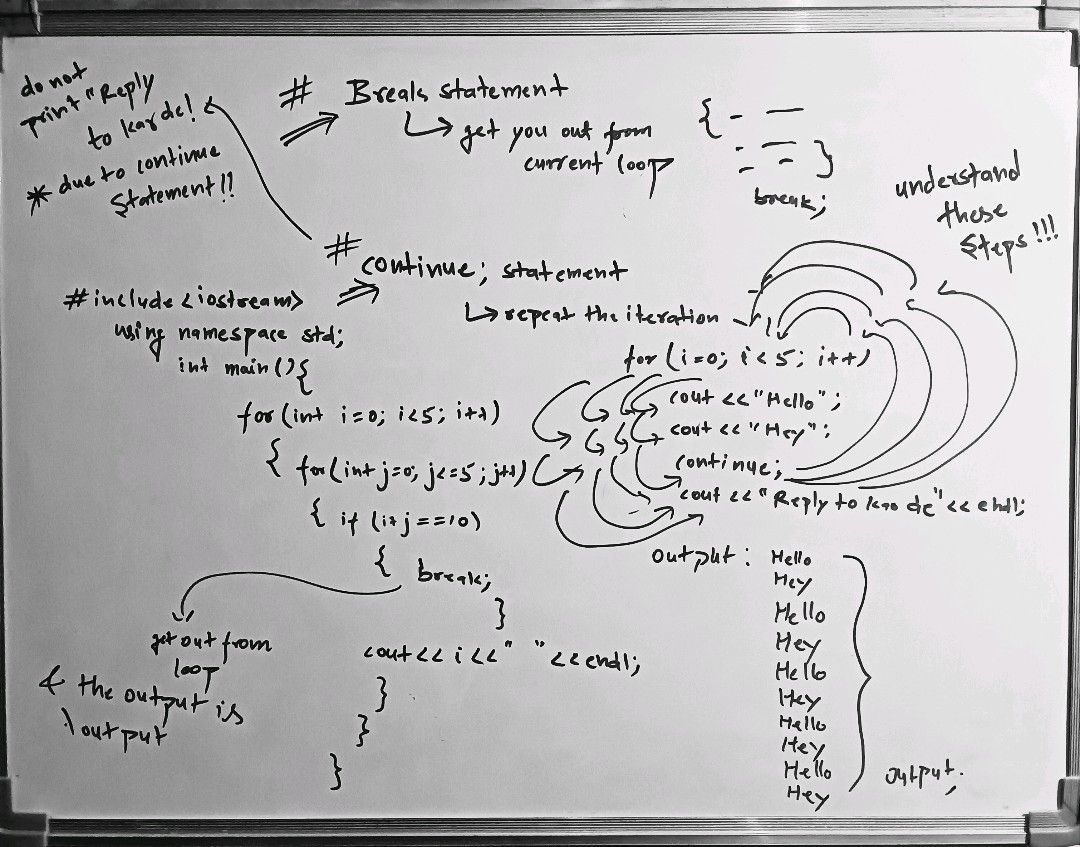 do not
print "Reply
to kar de!
* due to continue
Statement!!
# Break statement
get you out from
current loop
{ - —
- —
- - }
break;
understand
these
steps!!!
# continue; statement
repeat the iteration
#include <iostream>
using namespace std;
int main(){
for(int i=0; i<5; i++)
{ for(int j=0; j<=5; j++)
{ if (i+j==10)
{ break;
}
cout << i << " " << endl;
}
}
}
get out from
loop
& the output is
\output
for (i=0; i<5; i++)
cout << "Hello";
cout << "Hey";
continue;
cout << "Reply to kar de" << endl;
output: Hello
Hey
Hello
Hey
Hello
Hey
Hello
Hey
Hello
Hey
output;